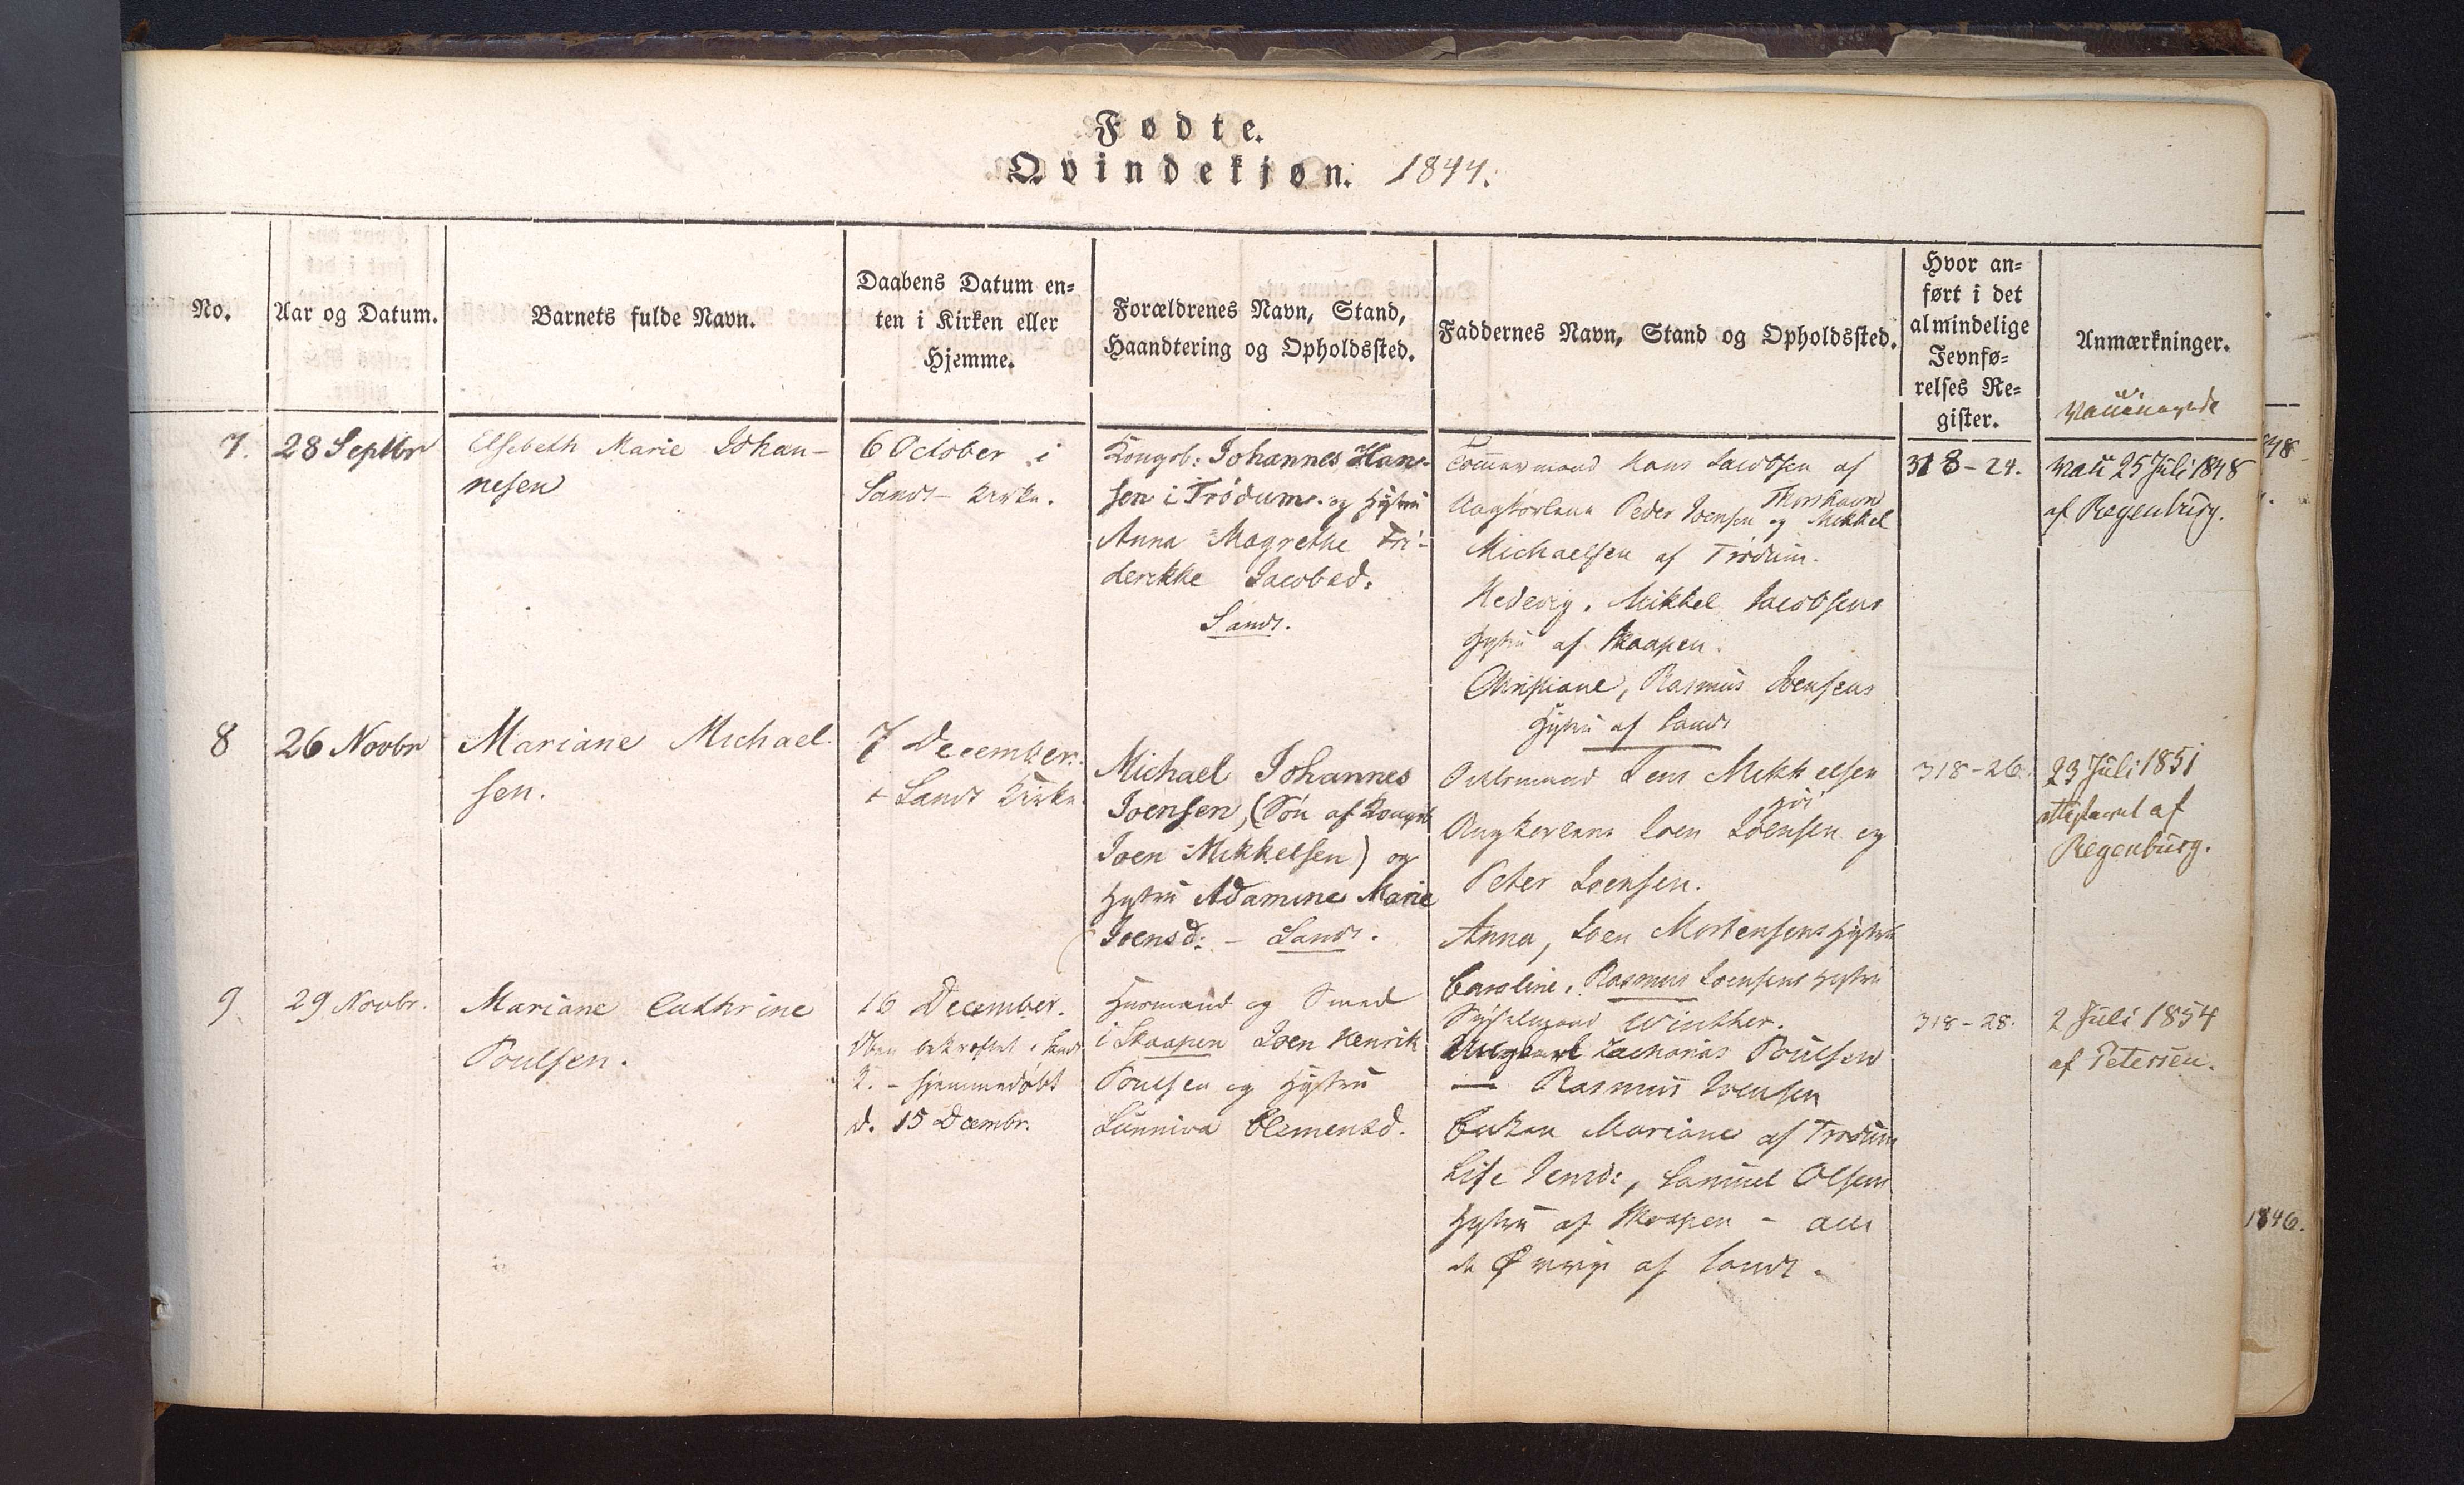 Fødte.
Qvindekjøn. 1844.
No.
Aar og Datum.
Barnets fulde Navn.
Daabens Datum en-
ten i Kirken eller
Hjemme.
Forældrenes Navn, Stand,
Haandtering og Opholdssted.
Faddernes Navn, Stand og Opholdssted.
Hvor an-
ført i det
almindelige
Jevnfø-
relses Re-
gister.
Anmærkninger.
7.
28 Septbr
Elsebeth Marie Johan-
nesen
6 October i
Sands Kirke.
Kongsb: Johannes Han-
sen i Trödum og Hustru
Anna Magrethe Fri-
derikke Jacobsd:
Sands.
Tømmermand Hans Jacobsen af
Thorshavn
Ungkarlene Peder Joensen og Mikkel
Michaelsen af Trödum.
Hedevig, Mikkel Jacobsens
Hustru af Skaapen.
Christiane, Rasmus Joensens
Hustru af Sands
318-24.
Vacc 25 Juli 1848
af Regenburg.
8
26 Novbr
Mariane Michael
sen.
7 December
i Sands Kirke.
Michael Johannes
Joensen, (Søn af Kongsb
Joen Mikkelsen) og
Hustru Adamine Marie
Joensd: - Sands.
Jens Mikkelsen
Ungkarlene Joen Joensen og
Peter Joensen.
Anna, Joen Mortensens Hustru
Caroline, Rasmus Joensens Hustru
318-26.
23 Juli 1851
attesteret af
Regenburg.
9.
29 Novbr.
Mariane Cathrine
Poulsen.
16 December.
bekræftet i Sands
K. - hjemmedøbt
d. 15 Decembr.
Huusmand og Smed
i Skaapen Joen Henrik
Poulsen og Hustru
Sunniva Clemensd.
Sysselmand Winther.
Ungkarl Zacharias Poulsen
— Rasmus Joensen
Enken Mariane af Trodum
Lise Jensd:, Samuel Olsens
Hustru af Skaapen - alle
de Øvrige af Sands.
318-28.
2 Juli 1854
af Petersen.
1846.